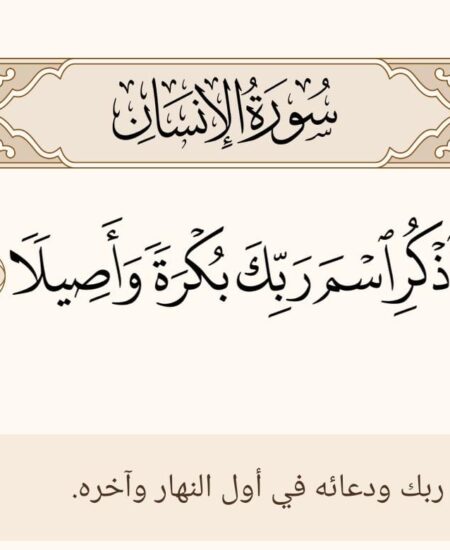 سُورَةُ الإِنسَانِ
ٱذۡكُرِ ٱسۡمَ رَبِّكَ بُكۡرَةٗ وَأَصِيلٗا
ربك ودعائه في أول النهار وآخره.